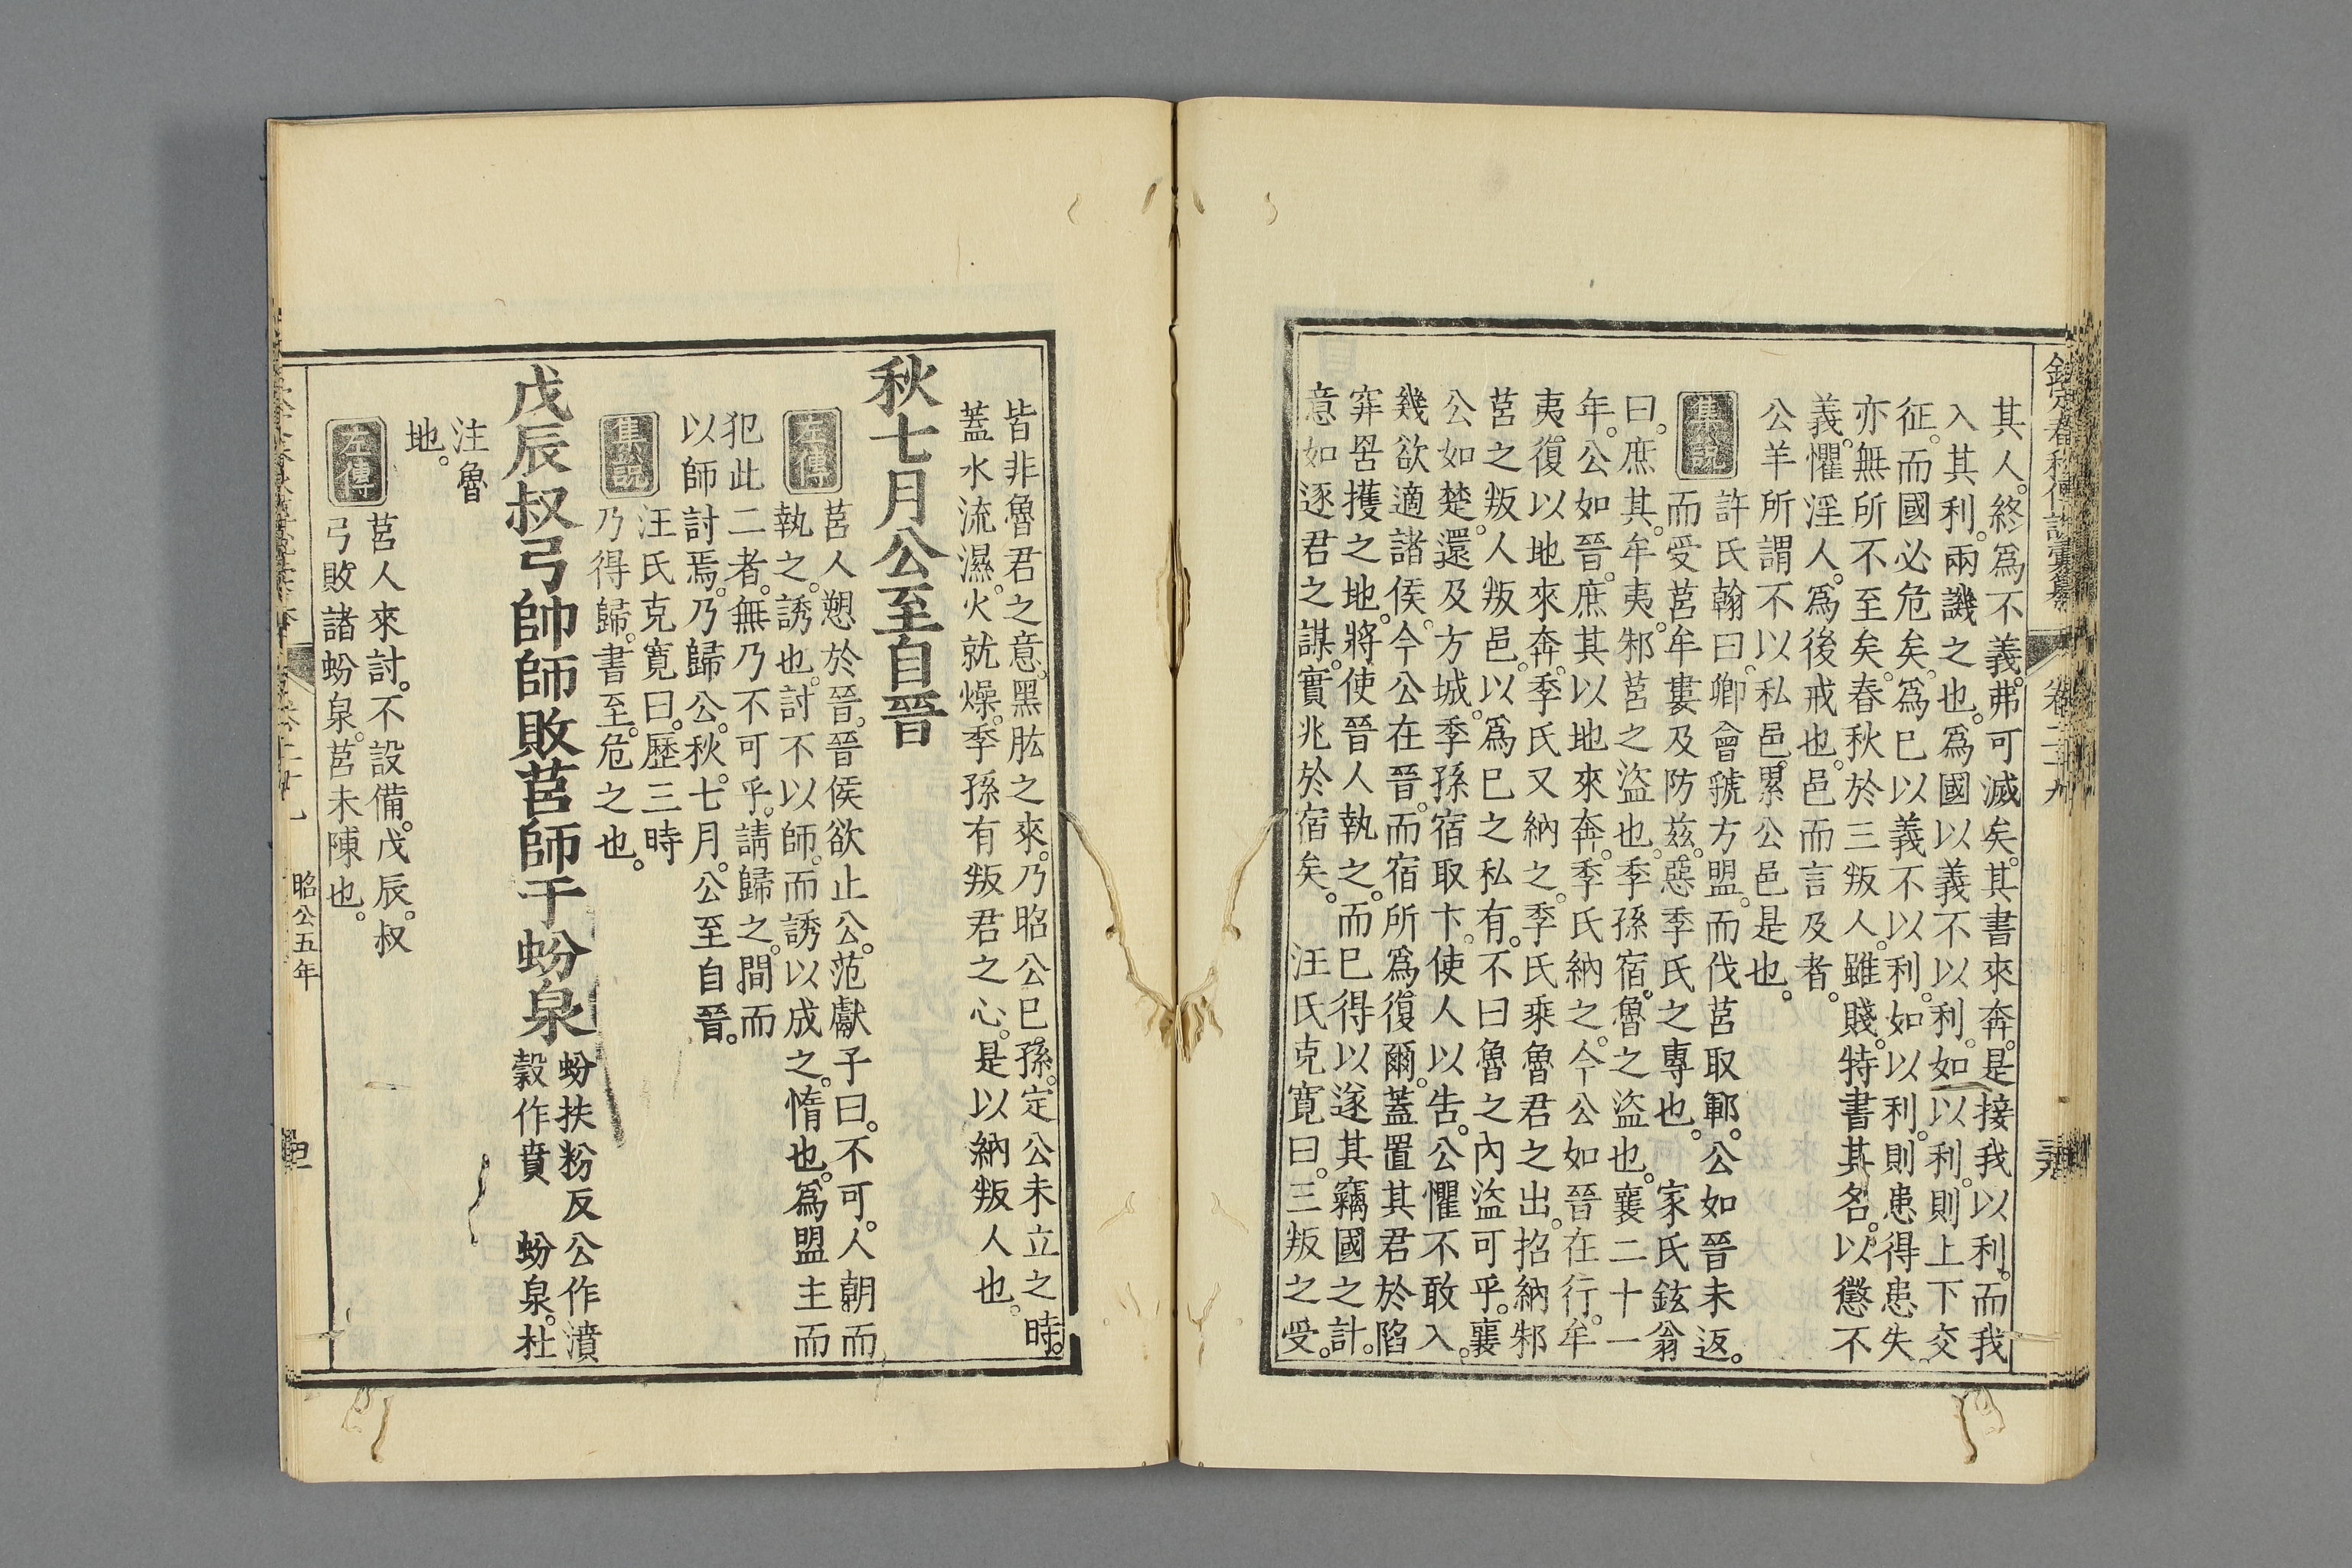 欽定春秋傳說彙纂
卷二十九
其人。終爲不義。弗可滅矣。其書來奔。是接我以利。而我
入其利。兩譏之也。爲國以義不以利。如以利。則上下交
征。而國必危矣。爲已以義不以利。如以利。則患得患失
亦無所不至矣。春秋於三叛人。雖賤。特書其名。以懲不
義。懼淫人。爲後戒也。邑而言及者。
公羊所謂不以私邑累公邑是也。
集說
許氏翰曰。卿會虢方盟。而伐莒取鄆。公如晉未返。
而受莒牟婁及防茲。惡季氏之專也。
家氏鉉翁
曰。庶其。牟夷。邾莒之盜也。季孫宿。魯之盜也。襄二十一
年。公如晉。庶其以地來奔。季氏納之。今公如晉在行。牟
夷復以地來奔。季氏又納之。季氏乘魯君之出。招納邾
莒之叛人叛邑。以爲已之私有。不曰魯之內盜可乎。襄
公如楚。還及方城。季孫宿取卞。使人以告。公懼不敢入。
幾欲適諸侯。今公在晉。而宿所爲復爾。蓋置其君於陷
穽罟擭之地。將使晉人執之。而已得以遂其竊國之計。
意如逐君之謀。實兆於宿矣。
汪氏克寛曰。三叛之受。
皆非魯君之意。黑肱之來。乃昭公已孫。定公未立之時。
蓋水流濕。火就燥。季孫有叛君之心。是以納叛人也。
秋七月公至自晉
左傳
莒人愬於晉。晉侯欲止公。范獻子曰。不可。人朝而
執之。誘也。討不以師。而誘以成之。惰也。爲盟主而
犯此二者。無乃不可乎。請歸之。間而
以師討焉。乃歸公。秋。七月。公至自晉。
集說
汪氏克寛曰。歷三時
乃得歸。書至。危之也。
戊辰叔弓帥師敗莒師于蚡泉
蚡扶粉反公作濆
穀作賁 蚡泉。杜
注魯
地。
左傳
莒人來討。不設備。戊辰。叔
弓敗諸蚡泉。莒未陳也。
昭公五年